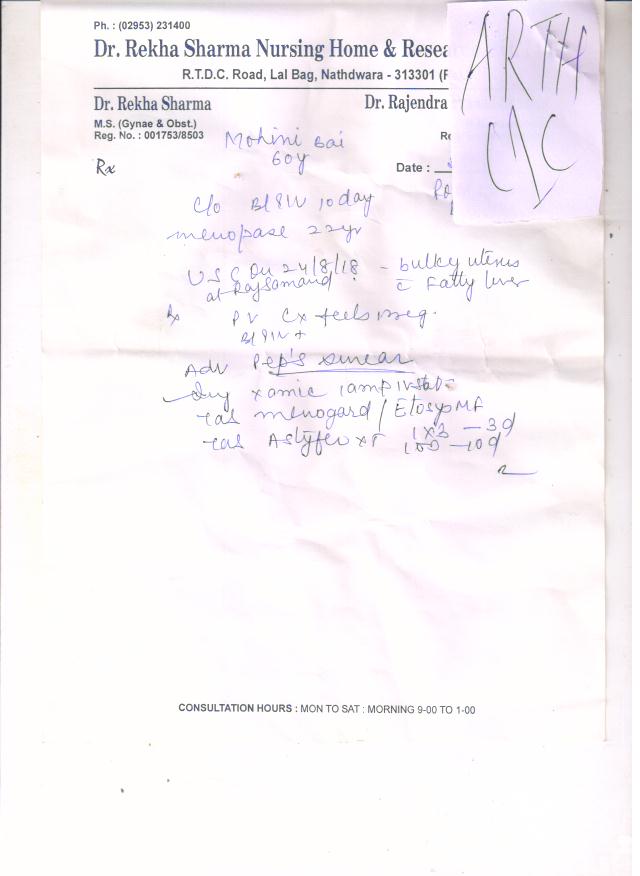 Ph. : (02953) 231400
Dr. Rekha Sharma Nursing Home & Resea
R.T.D.C. Road, Lal Bag, Nathdwara - 313301 (R
ARTH
Dr. Rekha Sharma
Dr. Rajendra
M.S. (Gynae & Obst.)
Reg. No. : 001753/8503
Re
Mohini Bai
60y
Rx
Date :
c/o 10 day
menopase 22yr
USG on 24/8/18 - bulky uterus
at Rajsamand c̄ Fatty liver
Rx PV Cx feels irreg.
+
Adv Pep's smear
Inj xamic 1amp IV stat
Tab menogard / Etosys MF
1x3 - 3d
Tab Astyfer XT 100 - 10d
CONSULTATION HOURS : MON TO SAT : MORNING 9-00 TO 1-00